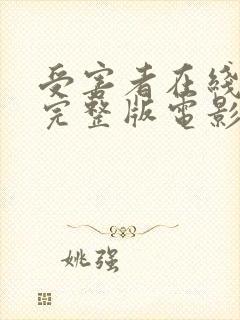 受害者在线
完整版电影
姚强